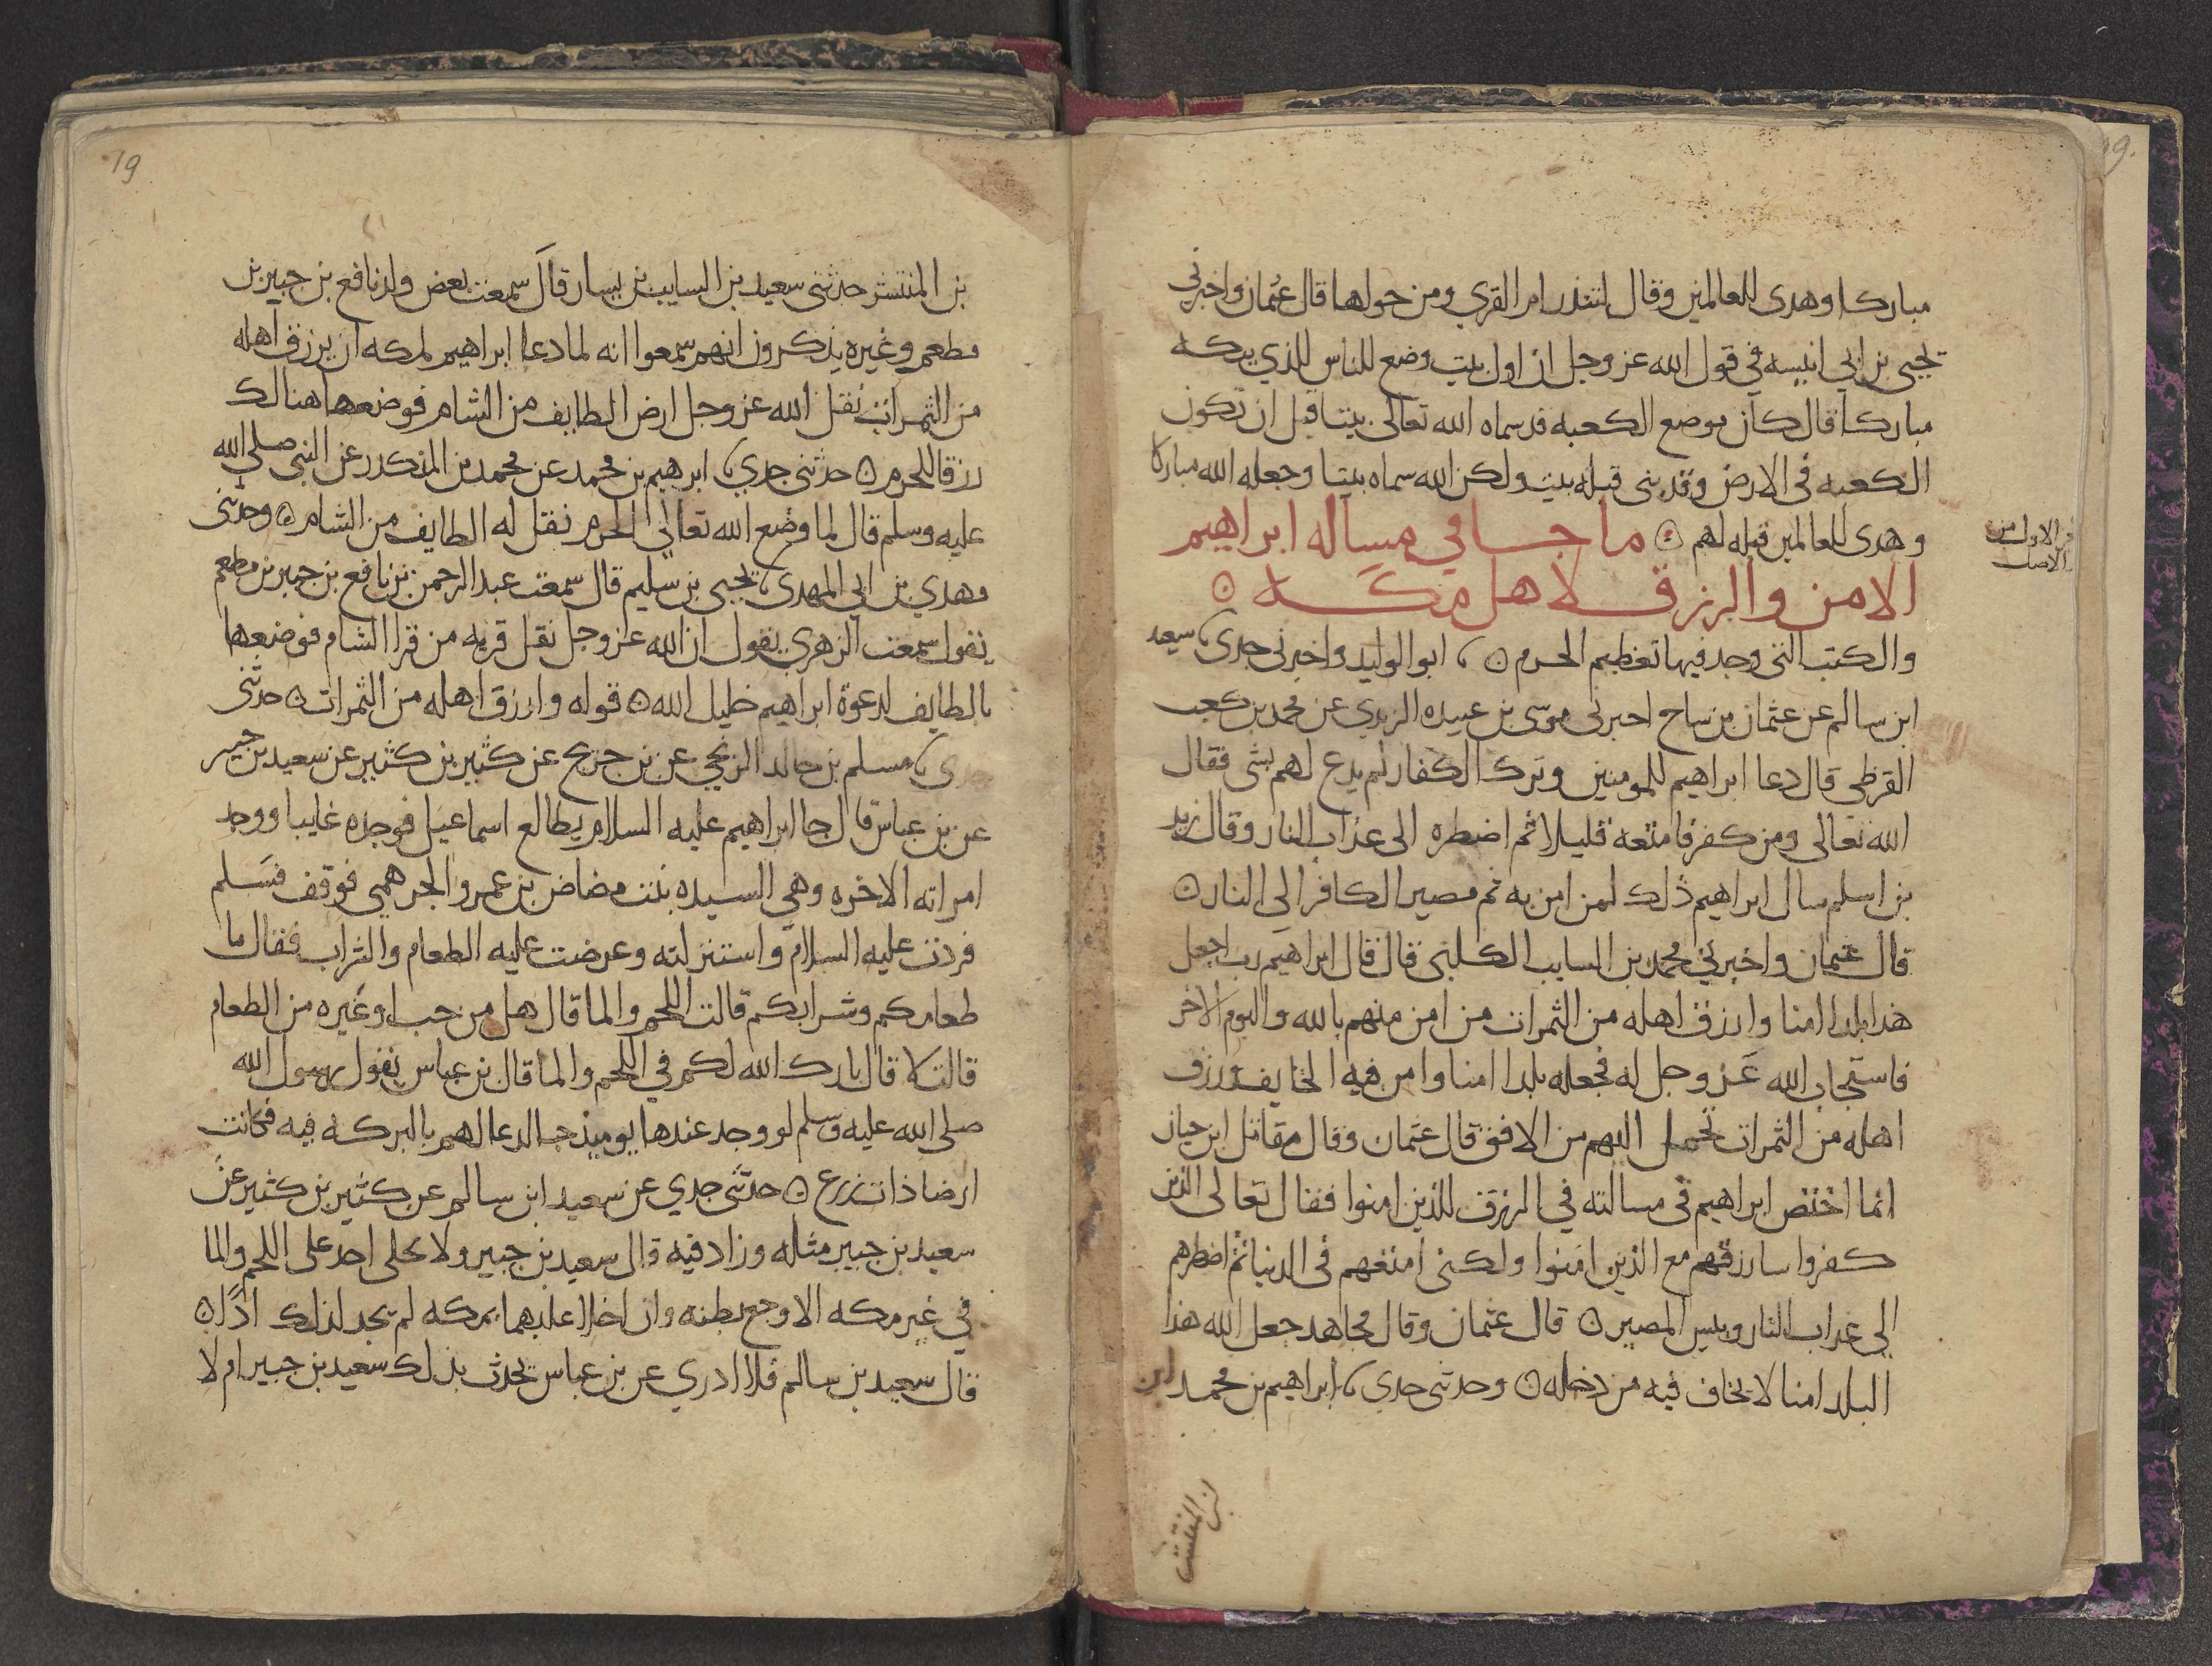 مباركا وهدى للعالمين وقال لتنذر ام القرى ومن حولها قال عثمان واخبرني
يحيى بن ابي انيسه في قول الله عز وجل ان اول بيت وضع للناس للذي ببكه
مباركا قال كان موضع الكعبه قد سماه الله تعالى بيتا قبل ان تكون
الكعبه في الارض وقد بنى قبله بيت ولكن الله سماه بيتا وجعله الله مباركا
وهدى للعالمين قبله لهم ۞ ما جا في مساله ابراهيم
الاول من
الاصل
الامن والرزق لاهل مكه ۞
والكتب التي وجد فيها تعظيم الحرم ۞ ابو الوليد واخبرني جدي سعيد
ابن سالم عن عثمان بن ساج اخبرني موسى بن عبيده الربدي عن محمد بن كعب
القرظي قال دعا ابراهيم للمومنين وترك الكفار لم يدع لهم بشي فقال
الله تعالى ومن كفر فامتعه قليلا ثم اضطره الى عذاب النار وقال زيد
بن اسلم سال ابراهيم ذلك لمن امن به ثم مصير الكافر الى النار ۞
قال عثمان واخبرني محمد بن السايب الكلبي قال قال ابراهيم رب اجعل
هذا بلدا امنا وارزق اهله من الثمرات من امن منهم بالله واليوم الاخر
فاستجاب الله عز وجل له فجعله بلدا امنا وامن فيه الخايف ورزق
اهله من الثمرات تحمل اليهم من الافق قال عثمان وقال مقاتل ابن حيان
انما اختص ابراهيم في مسالته في الرزق للذين امنوا فقال تعالى الذين
كفروا سارزقهم مع الذين امنوا ولكني امتعهم في الدنيا ثم اضطرهم
الى عذاب النار وبيس المصير ۞ قال عثمان وقال مجاهد جعل الله هذا
البلد امنا لا يخاف فيه من دخله ۞ وحدثني جدي ابراهيم بن محمد ابن
بن المنتشر
19
بن المنتشر حدثني سعيد بن السايب بن يسار قال سمعت بعض ولد نافع بن جبير بن
مطعم وغيره يذكرون انهم سمعوا انه لما دعا ابراهيم لمكه ان يرزق اهله
من الثمرات نقل الله عز وجل ارض الطايف من الشام فوضعها هنالك
رزقا للحرم ۞ حدثني جدي ابرهيم بن محمد عن محمد بن المنكدر عن النبي صلى الله
عليه وسلم قال لما وضع الله تعالى الحرم نقل له الطايف من الشام ۞ وحدثني
مهدي بن ابي المهدي يحيى بن سليم قال سمعت عبد الرحمن بن نافع بن جبير بن مطعم
يقول سمعت الزهري يقول ان الله عز وجل نقل قريه من قرا الشام فوضعها
بالطايف لدعوة ابراهيم خليل الله ۞ قوله وارزق اهله من الثمرات ۞ حدثني
جدي مسلم بن خالد الزنجي عن بن جريج عن كثير بن كثير عن سعيد بن جبير
عن بن عباس قال جا ابراهيم عليه السلام يطالع اسماعيل فوجده غايبا ووجد
امراته الاخره وهي السيده بنت مضاض بن عمرو الجرهمي فوقف فسلم
فردت عليه السلام واستنزلته وعرضت عليه الطعام والشراب فقال ما
طعامكم وشرابكم قالت اللحم والما قال هل من حب او غيره من الطعام
قالت لا قال بارك الله لكم في اللحم والما قال بن عباس يقول رسول الله
صلى الله عليه وسلم لو وجد عندها يوميذ حبا لدعا لهم بالبركه فيه فكانت
ارضا ذات زرع ۞ حدثني جدي عن سعيد ابن سالم عن كثير بن كثير عن
سعيد بن جبير مثله وزاد فيه قال سعيد بن جبير ولا يخلى احد على اللحم والما
في غير مكه الا وجع بطنه وان اخلا عليهما بمكه لم يجد لذلك اذا ۞
قال سعيد بن سالم فلا ادري عن بن عباس يحدث بذلك سعيد بن جبير ام لا